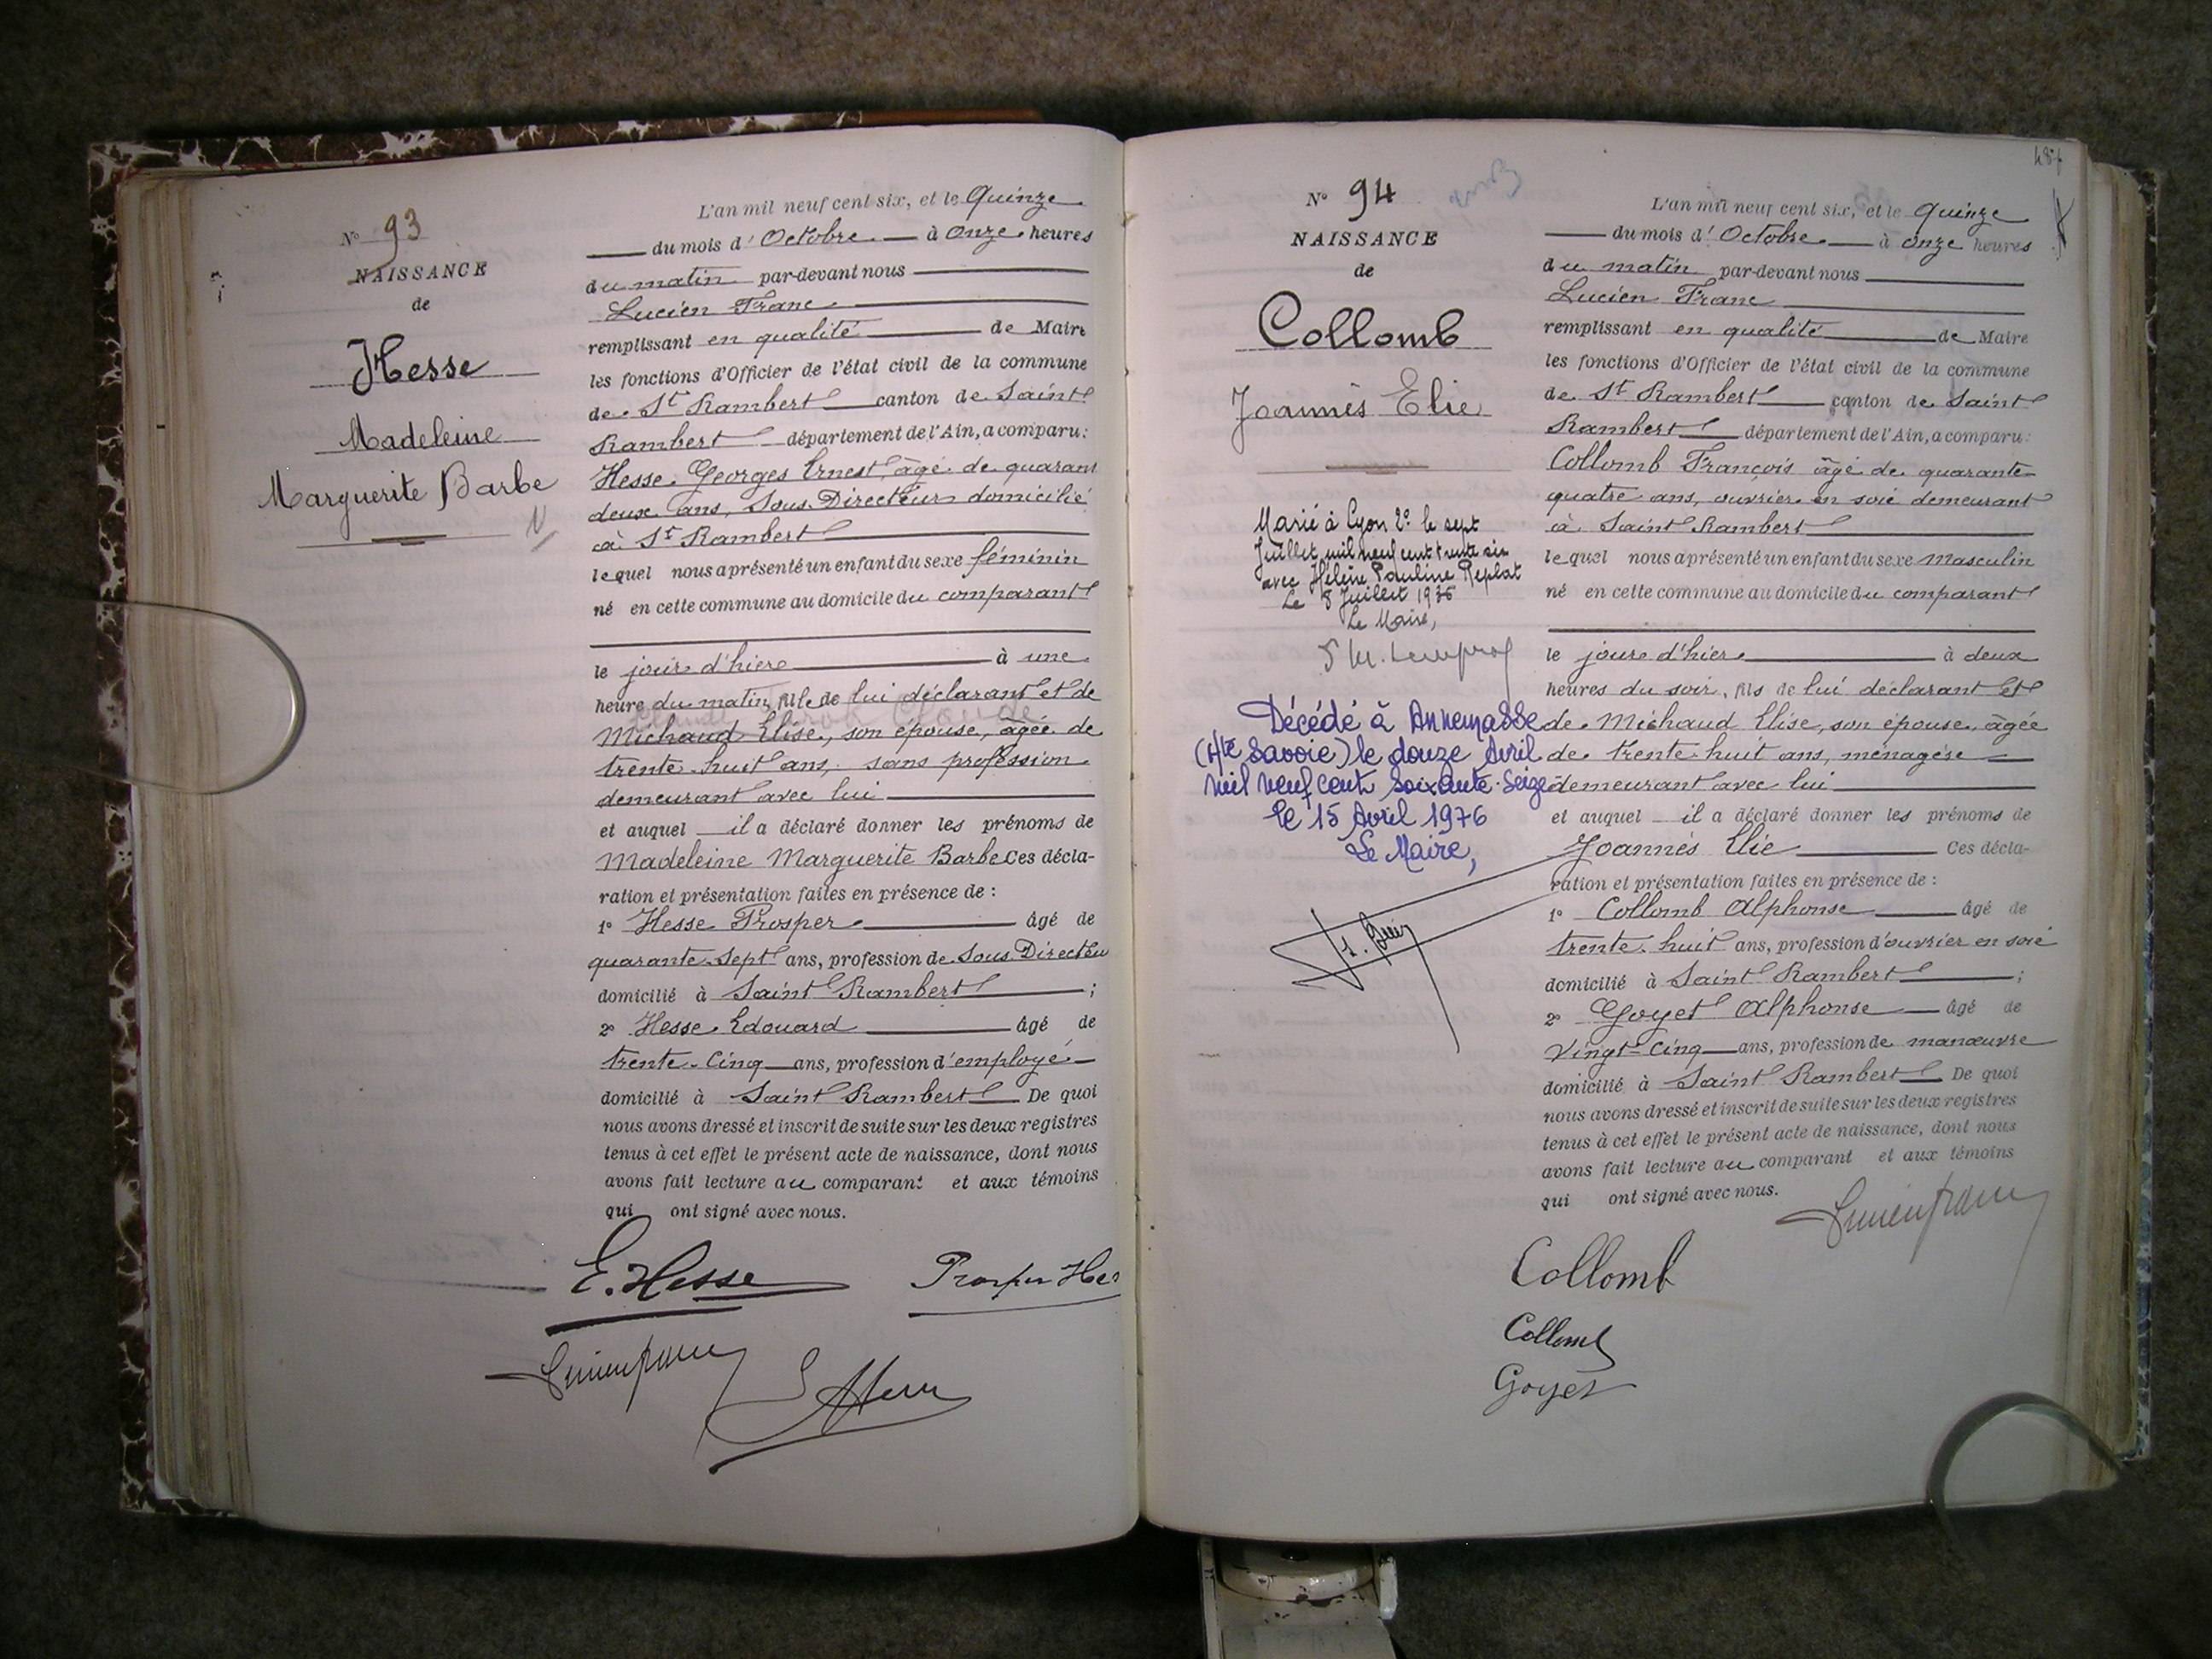 N° 93
NAISSANCE
de
Hesse
Madeleine
Marguerite Barbe
L'an mil neuf cent six, et le Quinze
du mois d'Octobre à Onze heures
du matin par-devant nous
Lucien Franc
remplissant en qualité de Maire
les fonctions d'Officier de l'état civil de la commune
de St Rambert canton de Saint
Rambert département de l'Ain, a comparu:
Hesse Georges Ernest âgé de quarant
deux ans, Sous-Directeur domicilié
à St Rambert
lequel nous a présenté un enfant du sexe féminin
né en cette commune au domicile du comparant
le jour d'hier à une
heure du matin, fille de lui déclarant et de
Michaud Elise, son épouse, âgée de
trente huit ans, sans profession
demeurant avec lui
et auquel il a déclaré donner les prénoms de
Madeleine Marguerite Barbe Ces décla-
ration et présentation faites en présence de :
1° Hesse Prosper âgé de
quarante-sept ans, profession de Sous-Directeu
domicilié à Saint Rambert ;
2° Hesse Edouard âgé de
trente-cinq ans, profession d'employé
domicilié à Saint Rambert De quoi
nous avons dressé et inscrit de suite sur les deux registres
tenus à cet effet le présent acte de naissance, dont nous
avons fait lecture au comparant et aux témoins
qui ont signé avec nous.
E. Hesse Prosper Hes
Lucien franc
N° 94
NAISSANCE
de
Collomb
Joannès Elie
Marié à Lyon 2e le sept
Juillet mil neuf cent trente six
avec Hélène Pauline Replat
Le 8 Juillet 1936
Le Maire,
Décédé à Annemasse
(Hte Savoie) le douze Avril
mil neuf cent soixante-seize
le 15 Avril 1976
Le Maire,
L'an mil neuf cent six, et le quinze
du mois d'Octobre à onze heures
du matin par-devant nous
Lucien Franc
remplissant en qualité de Maire
les fonctions d'Officier de l'état civil de la commune
de St Rambert canton de Saint
Rambert département de l'Ain, a comparu:
Collomb François âgé de quarante
quatre ans, ouvrier en soie demeurant
à Saint Rambert
lequel nous a présenté un enfant du sexe masculin
né en cette commune au domicile du comparant
le jour d'hier à deux
heures du soir, fils de lui déclarant et
de Michaud Elise, son épouse, âgée
de trente-huit ans, ménagère
demeurant avec lui
et auquel il a déclaré donner les prénoms de
Joannès Elie Ces décla-
ration et présentation faites en présence de :
1° Collomb Alphonse âgé de
trente-huit ans, profession d'ouvrier en soie
domicilié à Saint Rambert ;
2° Goyet Alphonse âgé de
vingt-cinq ans, profession de manœuvre
domicilié à Saint Rambert De quoi
nous avons dressé et inscrit de suite sur les deux registres
tenus à cet effet le présent acte de naissance, dont nous
avons fait lecture au comparant et aux témoins
qui ont signé avec nous.
Lucien franc
Collomb
Collomb
Goyet